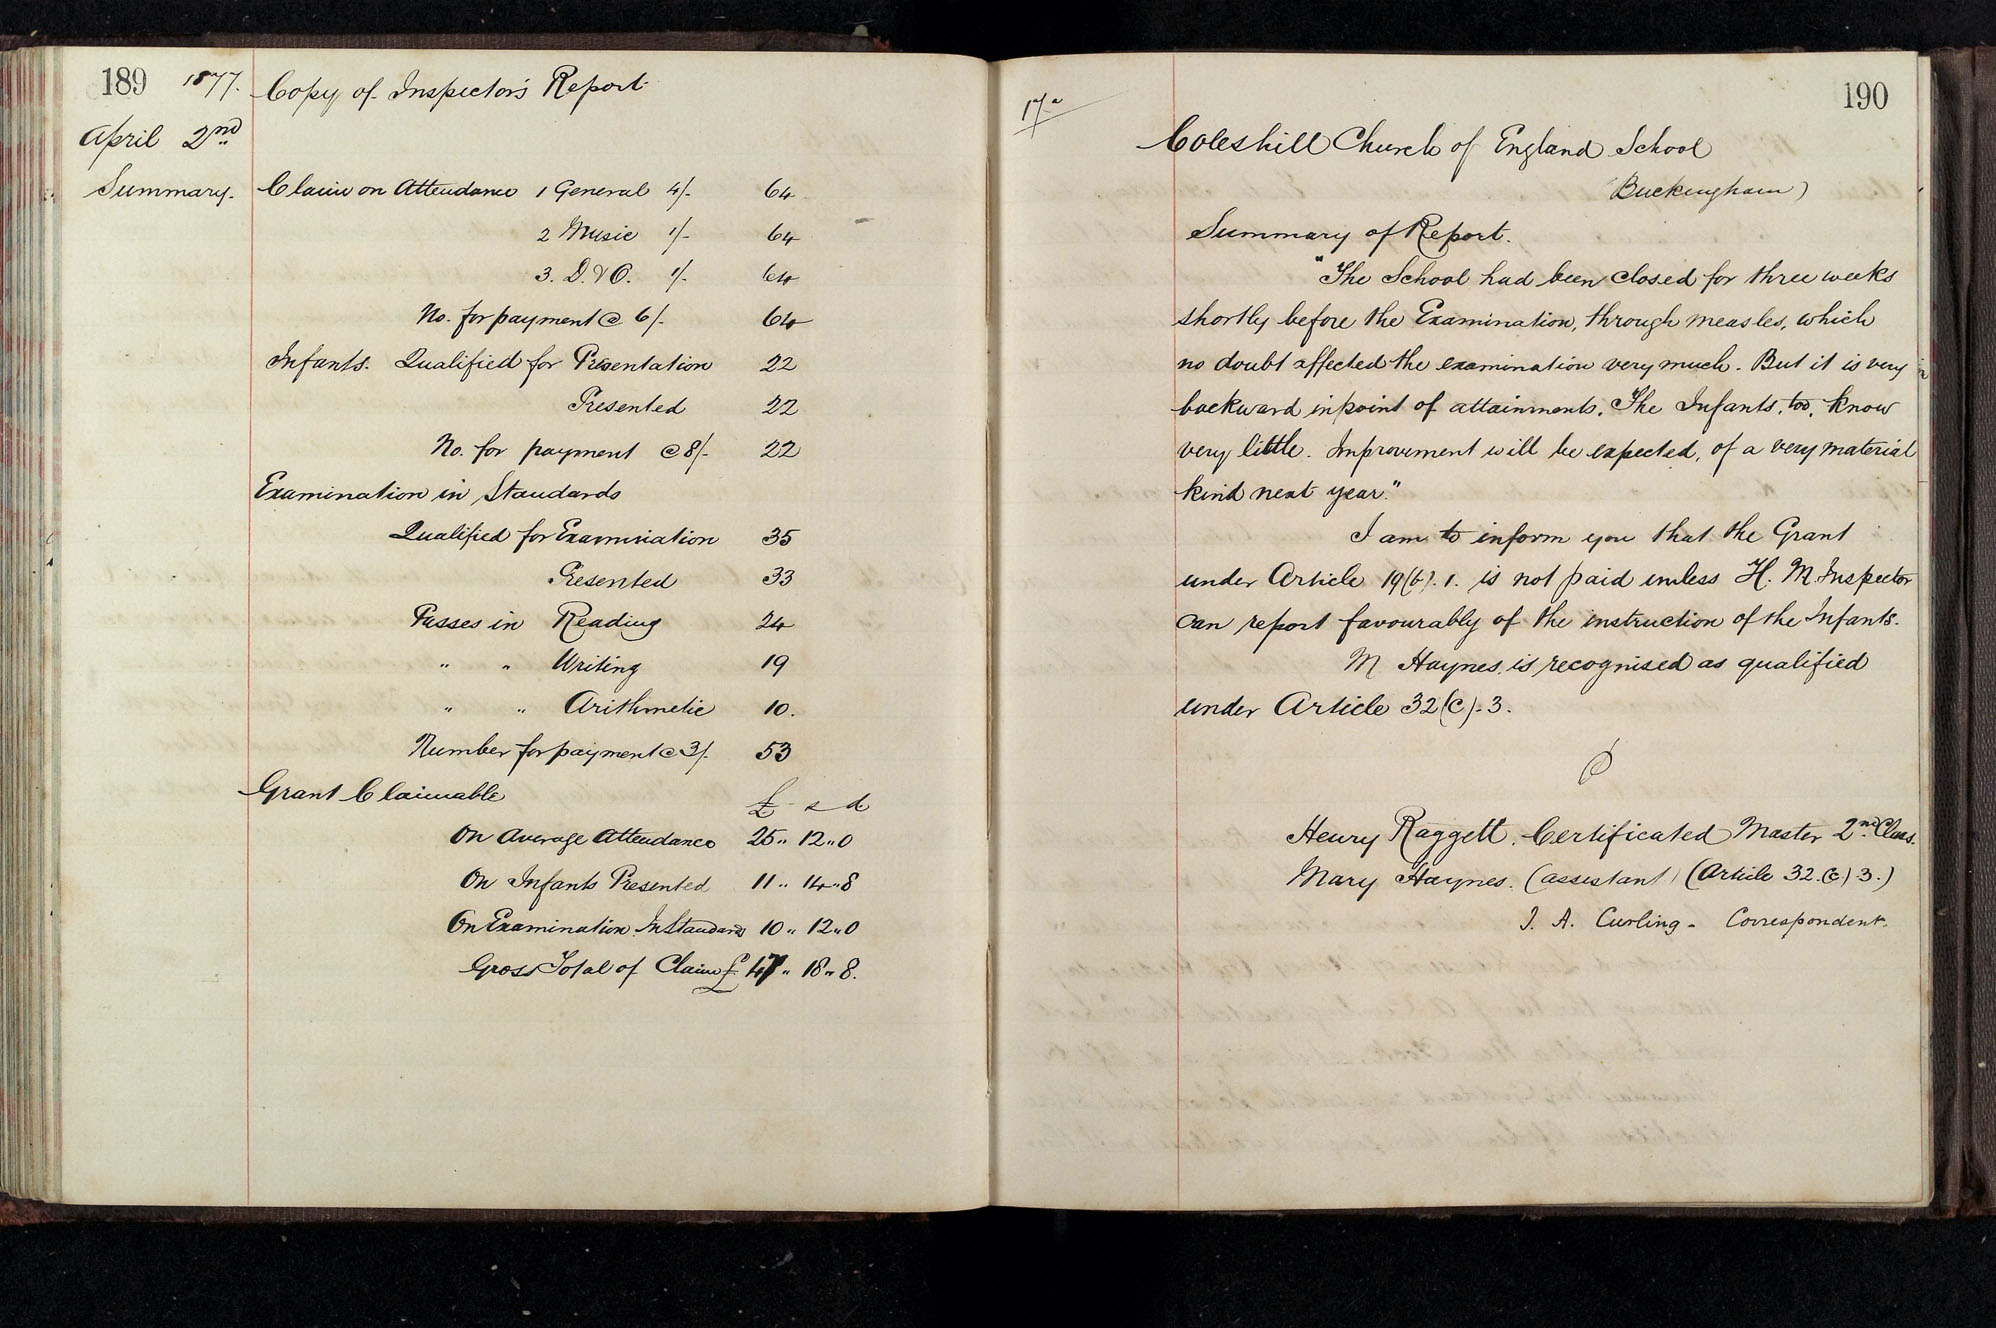 189 1877. Copy of Inspector's Report
April 2nd
Summary. Claim on Attendance 1 General 4/- 64
2 Music 1/- 64
3. D. & O. 1/- 64
No. for payment @ 6/- 64
Infants. Qualified for Presentation 22
Presented 22
No. for payment @ 8/- 22
Examination in Standards
Qualified for Examination 35
Presented 33
Passes in Reading 24
" " Writing 19
" " Arithmetic 10.
Number for payment @ 3/- 53
Grant Claimable
£ s d
On Average Attendance 25 " 12 " 0
On Infants Presented 11 " 14 " 8
On Examination In Standards 10 " 12 " 0
Gross Total of Claim £ 47 " 18 " 8.
17a
190
Coleshill Church of England School
(Buckingham)
Summary of Report.
"The School had been closed for three weeks
shortly before the Examination, through measles, which
no doubt affected the examination very much. But it is very
backward in point of attainments. The Infants, too, know
very little. Improvement will be expected, of a very material
kind next year."
I am to inform you that the Grant
under Article 19(b). 1. is not paid unless H. M. Inspector
can report favourably of the instruction of the Infants.
M Haynes is recognised as qualified
under Article 32(c).3.
Henry Raggett. Certificated Master 2nd Class.
Mary Haynes. (assistant) (Article 32.(c) 3.)
J. A. Curling - Correspondent.